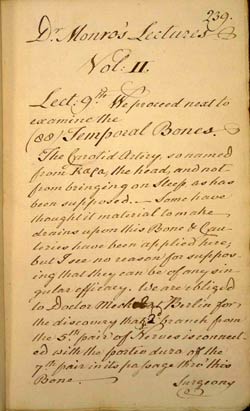 239.
Dr. Monro's Lectures
Vol: II.
Lect: 9th. We proceed next to
examine the
(88) Temporal Bones.
The Carolid Artery, so named
from Kaρα, the head, and not
from bringing on Sleep as has
been supposed. Some have
thought it material to make
drains upon this Bone & Cau-
teries have been applied here;
but I see no reason for suppos-
ing that they can be of any sin-
gular efficacy. We are obliged
to Doctor Meckel at Berlin for
the discovery that 2d branch from
the 5th pair of Nerves is connect-
ed with the portio dura of the
7th pair in its passage thro' this
Bone.
Surgeons